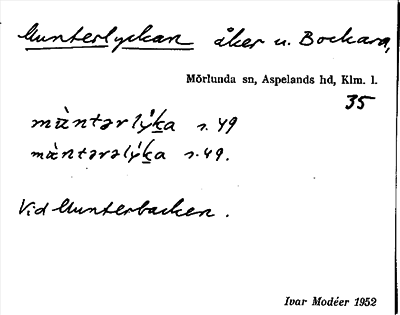 Munterlyckan åker u. Bockara,
Mörlunda sn, Aspelands hd, Klm. l.
35
mùntərlý̱ka s. 49
mùntərəlý̱ka s. 49.
Vid Munterbacken.
Ivar Modéer 1952